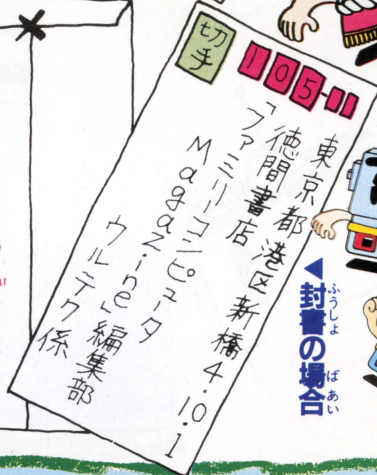 切手
105-■■
東京都港区新橋4.10.1
徳間書店
「ファミリーコンピュータ
Magazine」編集部
ウルテク係
◀封書の場合
ふうしょ
ばあい